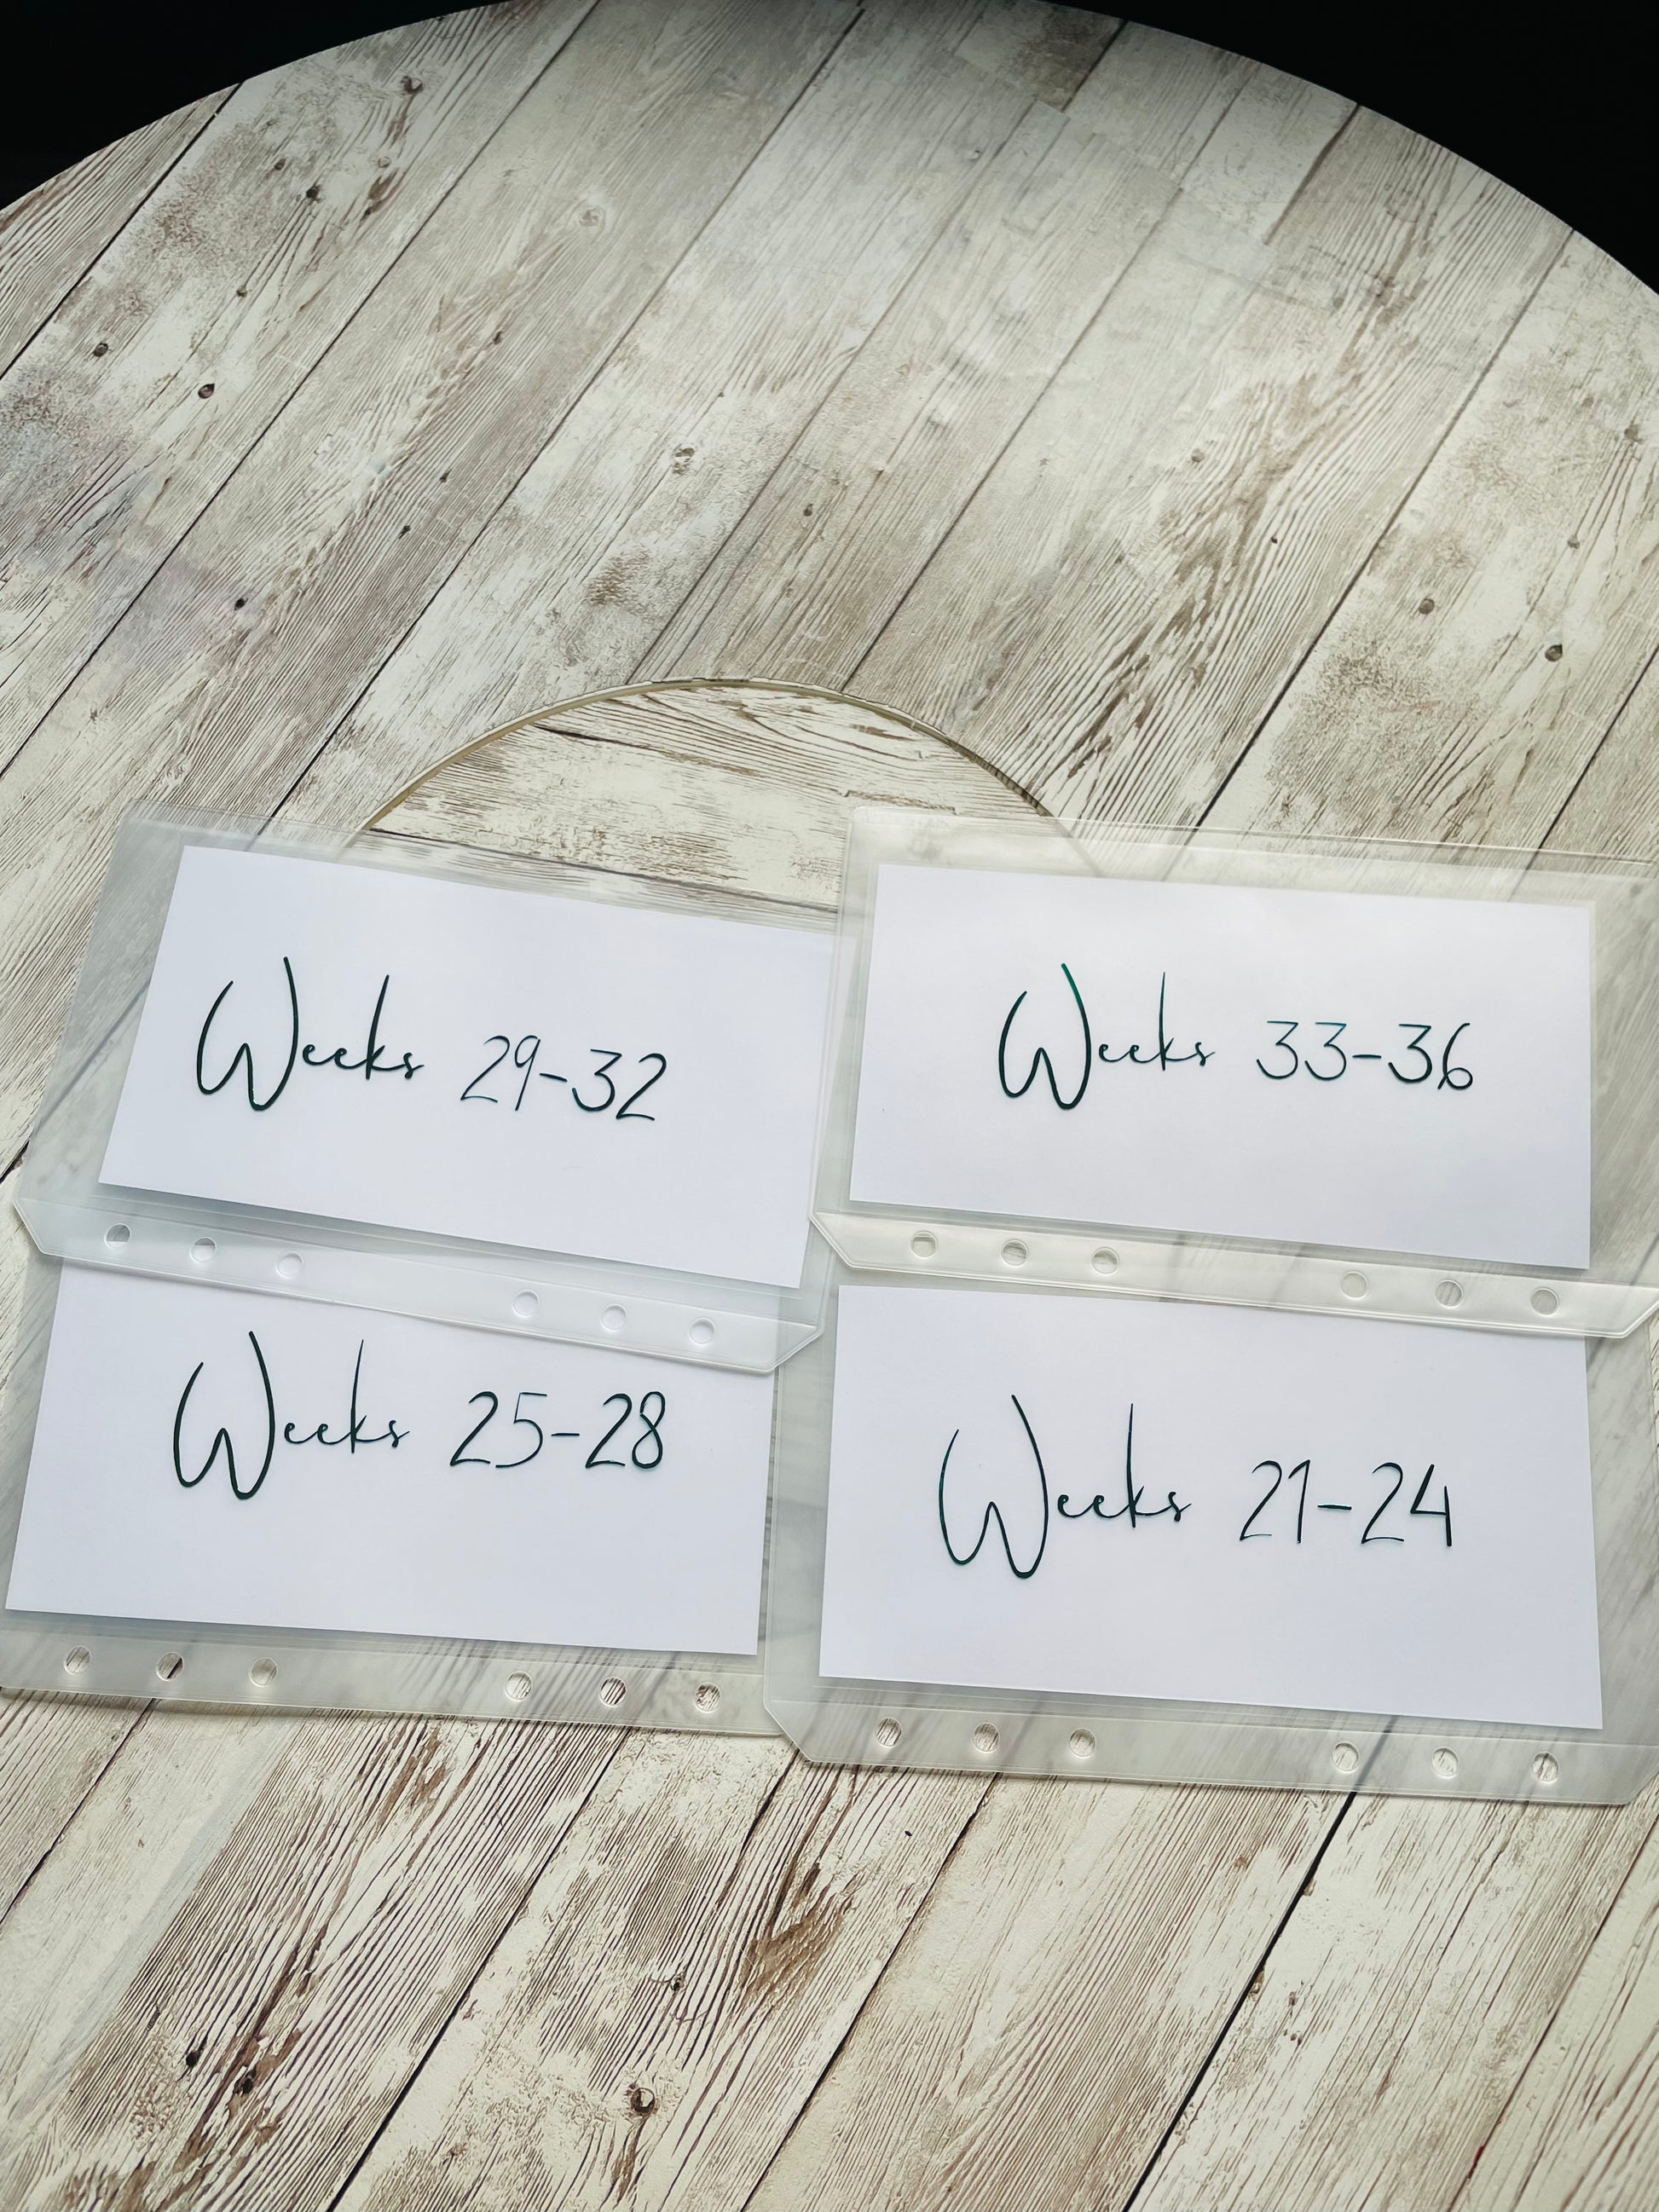 Weeks 29-32
Weeks 33-36
Weeks 25-28
Weeks 21-24